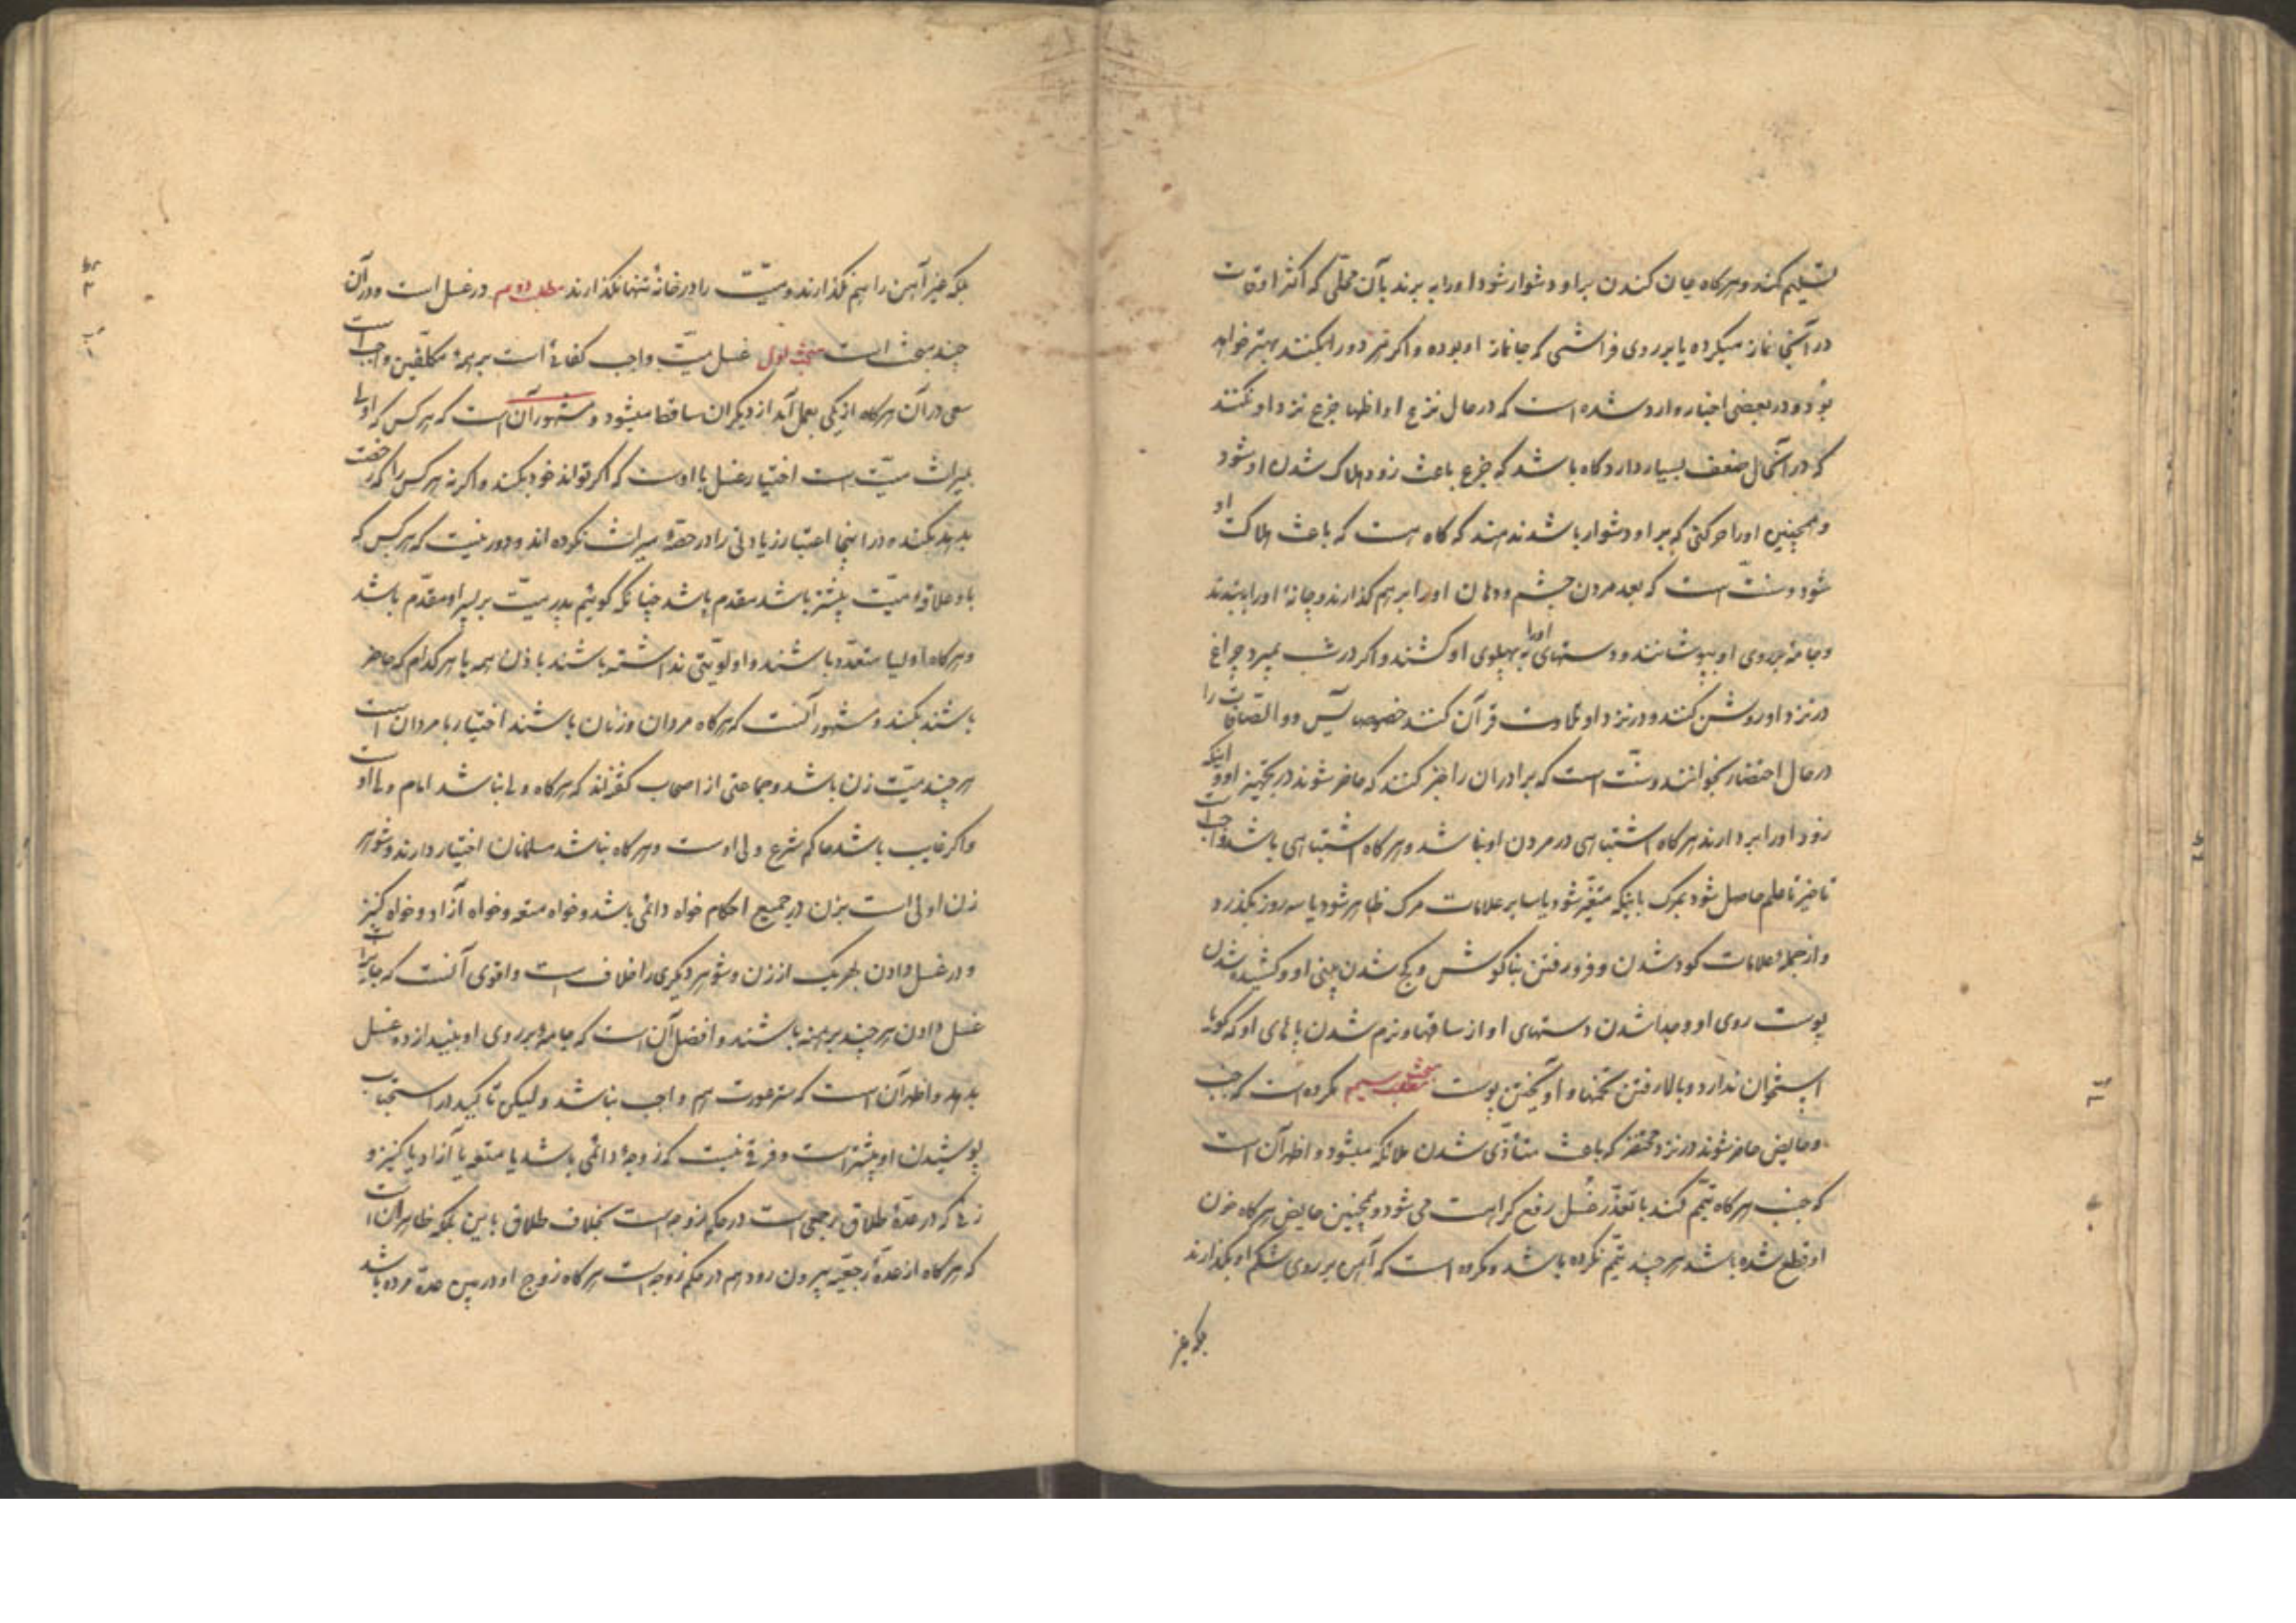 تسلیم کنند و هرگاه جان کندن بر او دشوار شود او را به برند بآن محلّی که اکثر اوقات
در آنجا نماز میکرده یا بر روی فراشی که جانماز او بوده و اکر هر دو را بکنند بهتر خواهد
بود و در بعضی اخبار وارد شده است که در حال نزع او اظهار جزع نزد او نکنند
که در آنحال ضعف بسیار دارد گاه باشد که جزع باعث زود هلاک شدن او شود
و همچنین او را حرکتی که بر او دشوار باشد ندهند که گاه هست که باعث هلاکت او
شود و سنّت است که بعد مردن چشم و دهان او را بر هم گذارند و چانهٔ او را به بندند
و جامهٔ بر روی او بپوشانند و دستهای او را به پهلوی او کشند و اکر در شب بمیرد چراغ
در نزد او روشن کنند و در نزد او تلاوت قرآن کنند خصوصا یٓس و والصّافات را
در حال احتضار بخوانند و سنّت است که برادران را خبر کنند که حاضر شوند در تجهیز او و اینکه
زود او را بردارند هرگاه اشتباهی در مردن او نباشد و هرگاه اشتباهی باشد واجب است
تاخیر تا علم حاصل شود بمرک باینکه متغیّر شود یا سایر علامات مرک ظاهر شود یا سه روز بگذرد
و از جملهٔ علامات کود شدن و فرو رفتن بناگوش و کج شدن بینی او و کشیده شدن
پوست روی او و جدا شدن دستهای او از ساقها و نرم شدن پاهای او که گویا
استخوان ندارد و بالا رفتن تخمها و آویختن پوست مبحث سیم مکروه است که جنب
و حایض حاضر شوند در نزد محتضر که باعث متأذّی شدن ملائکه میشود و اظهر آن است
که جنب هرگاه تیمّم کند با تعذّر غُسل رفع کراهت می شود و همچنین حایض هرگاه خون
او قطع شده باشد هر چند تیمّم نکرده باشد و مکروه است که آهن بر روی شکم او بگذارند
بلکه غیر
بلکه غیر آهن را هم نگذارند و میّت را در خانهٔ تنها نگذارند مطلب دوم در غسل است و در آن
چند مبحث است مبحث اول غسل میّت واجب کفائی است بر همهٔ مکلّفین واجب است
سعی در آن هرگاه از یکی بعمل آید از دیگران ساقط میشود و مشهور آن است که هر کس که اولی
بمیراث میّت است اختیار غسل با اوست که اکر تواند خود بکند و اکر نه هر کس را که رخصت
بدهد بکند و در اینجا اعتبار زیادتی را در حصّهٔ میراث نکرده اند و دور نیست که هر کس که
با و علاقهٔ میّت بیشتر باشد مقدم باشد چنانکه گوئیم پدر میّت بر پسر او مقدّم باشد
و هرگاه اولیا متعدّد باشند و اولویّتی نداشته باشند باذن همه یا هر کدام که حاضر
باشند بکنند و مشهور آنست که هرگاه مردان و زنان باشند اختیار با مردان است
هر چند میّت زن باشد و جماعتی از اصحاب گفته‌اند که هرگاه ولی نباشد امام ولی اوست
و اکر غایب باشد حاکم شرع ولی اوست و هرگاه نباشد مسلمانان اختیار دارند و شوهر
زن اولی است بزن در جمیع احکام خواه دائمی باشد و خواه متعه و خواه آزاد و خواه کنیز
و در غسل دادن هر یک از زن و شوهر دیکری را خلاف است و اقوی آنست که جایز است
غسل دادن هر چند برهنه باشند و افضل آن است که جامهٔ بر روی او بیندازد و غسل
بدهد و اظهر آن است که ستر عورت هم واجب نباشد و لیکن تاکید در استحباب
پوشیدن او بیشتر است و فرقی نیست که زوجهٔ دائمی باشد یا متعه یا آزاد یا کنیز و
زنی که در عدّهٔ طلاق رجعی است در حکم زوجه است بخلاف طلاق باین بلکه ظاهر آن است
که هرگاه از عدّهٔ رجعیّه بیرون رود هم در حکم زوجه است هرگاه زوج او در بین عدّه مرده باشد